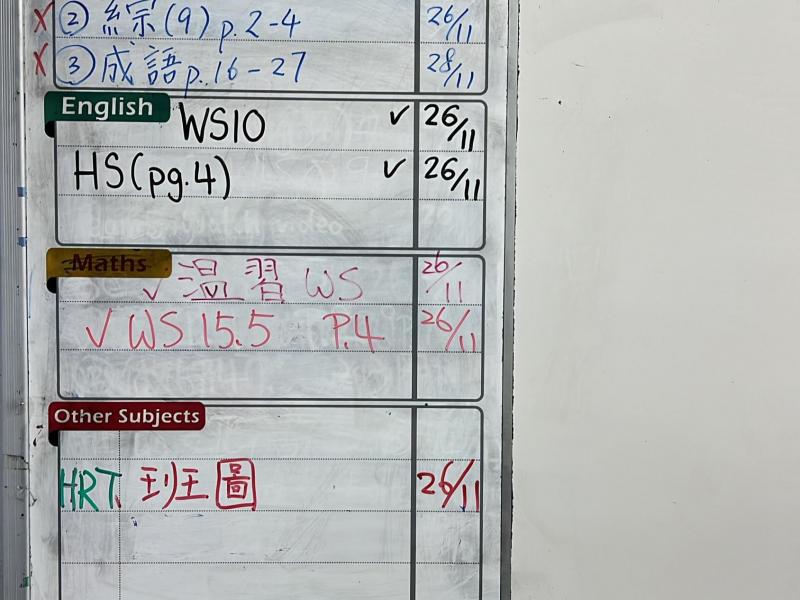 X ② 綜(9) p.2-4 26/11
X ③ 成語 p.16-27 28/11
English
WS10 ✓ 26/11
HS(pg.4) ✓ 26/11
Maths
✓ 溫習 WS 26/11
✓ WS 15.5 P.4 26/11
Other Subjects
HRT 班圖 26/11